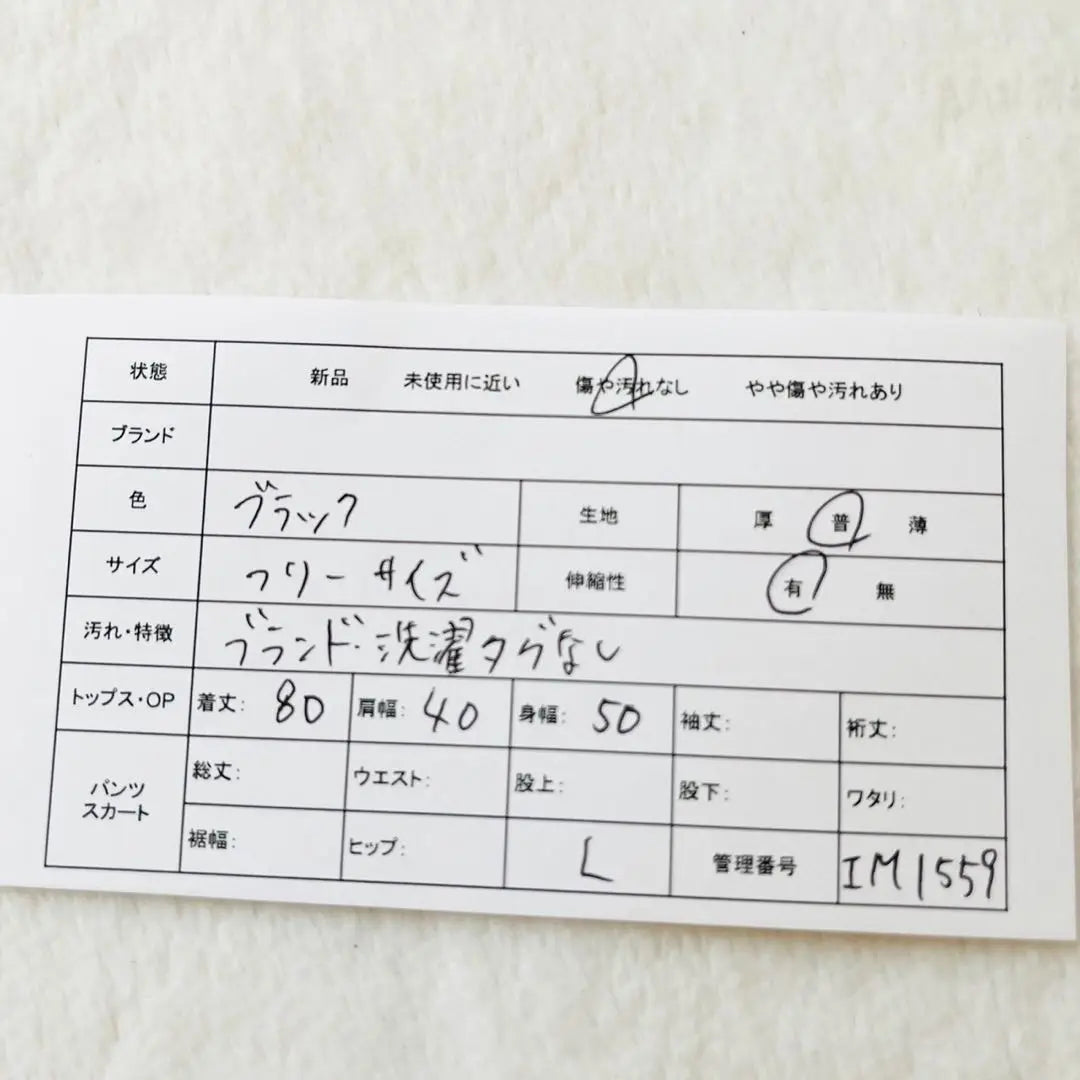 状態 新品 未使用に近い 傷や汚れなし やや傷や汚れあり
ブランド
色 ブラック 生地 厚 普 薄
サイズ フリーサイズ 伸縮性 有 無
汚れ・特徴 ブランド・洗濯タグなし
トップス・OP 着丈: 80 肩幅: 40 身幅: 50 袖丈: 裄丈:
パンツ
スカート
総丈: ウエスト: 股上: 股下: ワタリ:
裾幅: ヒップ: L 管理番号 IM1559